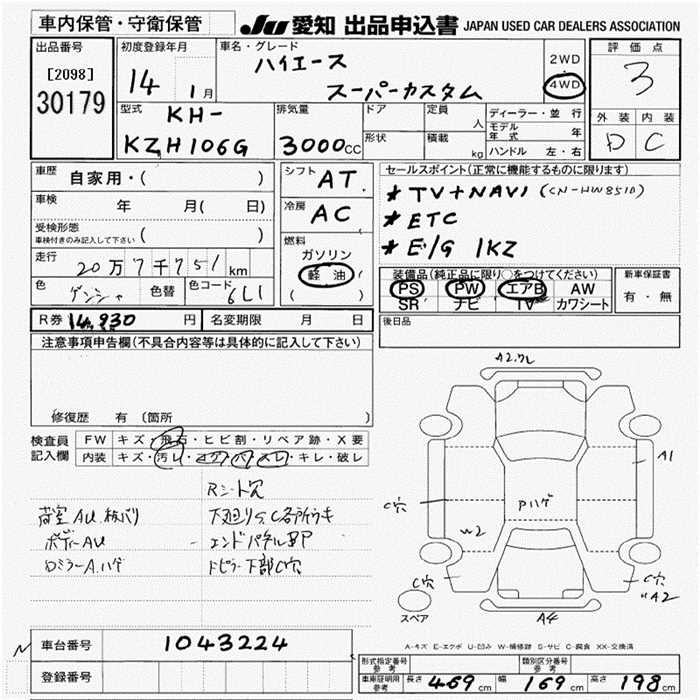 車内保管・守衛保管 JU 愛知 出品申込書 JAPAN USED CAR DEALERS ASSOCIATION
出品番号
[2098]
30179
初度登録年月
14 1月
車名・グレード
ハイエース
スーパーカスタム
2WD
4WD
評価点
3
外装 内装
D C
型式
KH-
KZH106G
排気量
3000cc
ドア
形状
定員 人
積載 kg
ディーラー・並行
モデル年式 年
ハンドル 左・右
車歴 自家用・( )
車検 年 月( 日)
受検形態
車検付きのみ記入して下さい ( )
走行 20万7千751km
色 ゲンシャ 色替 色コード 6L1
シフト AT
冷房 AC
燃料
ガソリン
軽油
( )
セールスポイント(正常に機能するものに限り)
* TV+NAVI (CN-HW851D)
* ETC
* E/G 1KZ
装備品(純正品に限り○をつけてください)
PS PW エアB AW
SR ナビ TV カワシート
新車保証書
有・無
後日品
R券 14,930円 名変期限 月 日
注意事項申告欄(不具合内容等は具体的に記入して下さい)
修復歴 有 (箇所
検査員
記入欄
FW キズ・飛石・ヒビ割・リペア跡・X要
内装 キズ・汚レ・コゲ・穴・スレ・キレ・破レ
Rシート穴
荷室AU、板バリ
ボディーAU
ロミラーA、ハゲ
下廻りS、C各所ウキ
エンドパネルBP
トビラ下部C穴
A2.ワレ
A1
C穴
Pハゲ
W2
C穴
C穴
A2
A4
スペア
A-キズ E-エクボ U-凹み W-補修跡 S-サビ C-腐食 XX-交換済
車台番号 1043224
登録番号
型式指定番号 参考
類別区分番号 参考
車庫証明用 参考 長さ 469cm 幅 169cm 高さ 198cm